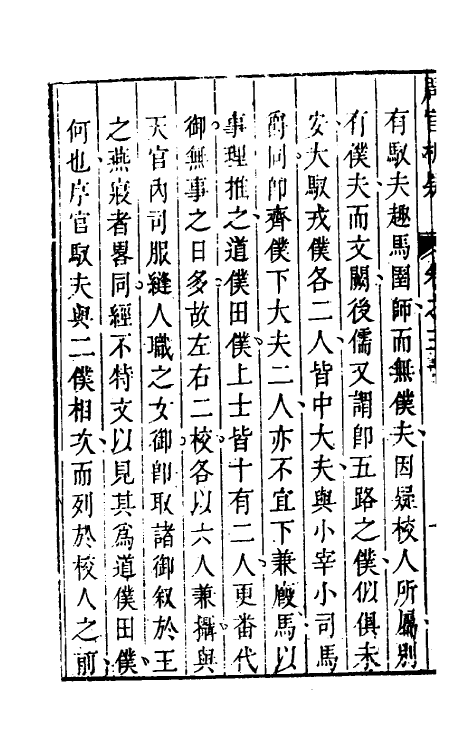 有馭夫趣馬圉師而無僕夫因疑校人所屬別
有僕夫而文闕後儒又謂卽五路之僕似俱未
安大馭戎僕各二人皆中大夫與小宰小司馬
爵同卽齊僕下大夫二人亦不宜下兼廐馬以
事理推之道僕田僕上士皆十有二人更番代
御無事之日多故左右二校各以六人兼攝與
天官內司服縫人職之女御卽取諸御叙於王
之燕寢者畧同經不特文以見其爲道僕田僕
何也序官馭夫與二僕相次而列於校人之前
周官析疑